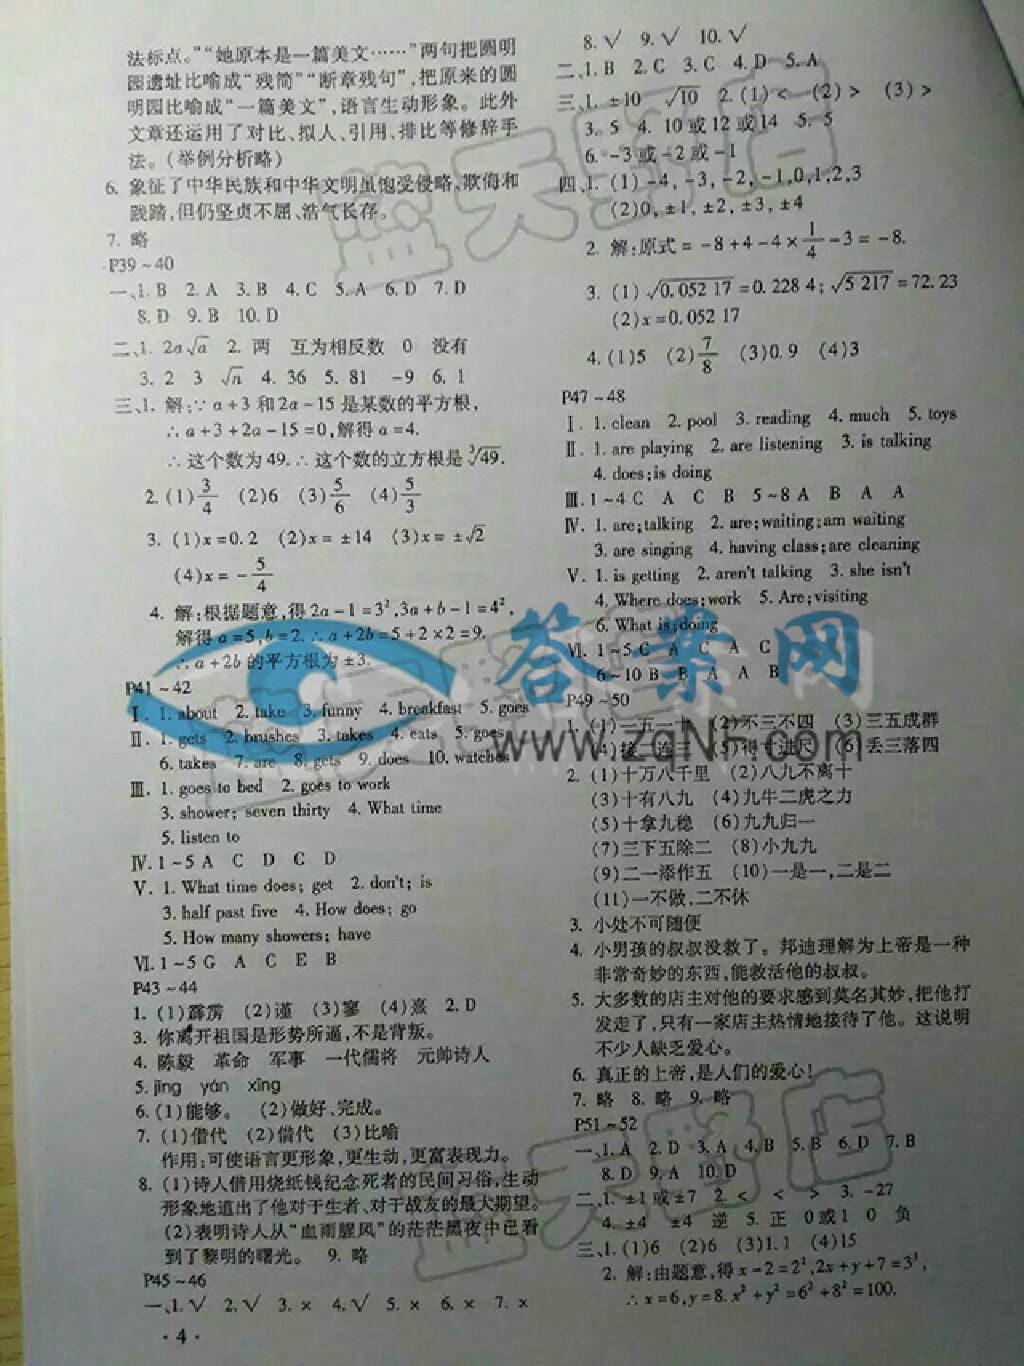 法标点。”“她原本是一篇美文……”两句把圆明
园遗址比喻成“残简”“断章残句”,把原来的圆
明园比喻成“一篇美文”,语言生动形象。此外
文章还运用了对比、拟人、引用、排比等修辞手
法。(举例分析略)
6. 象征了中华民族和中华文明虽饱受侵略、欺侮和
践踏,但仍坚贞不屈、浩气长存。
7. 略
P39~40
一、1. B 2. A 3. B 4. C 5. A 6. D 7. D
8. D 9. B 10. D
二、1. 2a√a 2. 两 互为相反数 0 没有
3. 2 3 √n 4. 36 5. 81 -9 6. 1
三、1. 解:∵a+3和2a-15是某数的平方根,
∴a+3+2a-15=0,解得a=4.
∴这个数为49.∴这个数的立方根是∛49.
2. (1)3/4 (2)6 (3)5/6 (4)5/3
3. (1)x=0.2 (2)x=±14 (3)x=±√2
(4)x=-5/4
4. 解:根据题意,得2a-1=3²,3a+b-1=4²,
解得a=5,b=2.∴a+2b=5+2×2=9.
∴a+2b的平方根为±3.
P41~42
Ⅰ. 1. about 2. take 3. funny 4. breakfast 5. goes
Ⅱ. 1. gets 2. brushes 3. takes 4. eats 5. goes
6. takes 7. are 8. gets 9. does 10. watches
Ⅲ. 1. goes to bed 2. goes to work
3. shower; seven thirty 4. What time
5. listen to
Ⅳ. 1~5 A C D C D
Ⅴ. 1. What time does; get 2. don't; is
3. half past five 4. How does; go
5. How many showers; have
Ⅵ. 1~5 G A C E B
P43~44
1. (1)霹雳 (2)谨 (3)寥 (4)熹 2. D
3. 你离开祖国是形势所逼,不是背叛。
4. 陈毅 革命 军事 一代儒将 元帅诗人
5. jīng yán xīng
6. (1)能够。 (2)做好、完成。
7. (1)借代 (2)借代 (3)比喻
作用:可使语言更形象,更生动,更富表现力。
8. (1)诗人借用烧纸钱纪念死者的民间习俗,生动
形象地道出了他对于生者、对于战友的最大期望。
(2)表明诗人从“血雨腥风”的茫茫黑夜中已看
到了黎明的曙光。 9. 略
P45~46
一、1. √ 2. √ 3. × 4. √ 5. × 6. × 7. ×
·4·
8. √ 9. √ 10. √
二、1. B 2. C 3. C 4. D 5. A
三、1. ±10 √10 2. (1)< (2)> (3)>
3. 5 4. 10或12或14 5. 5
6. -3或-2或-1
四、1. (1)-4,-3,-2,-1,0,1,2,3
(2)0,±1,±2,±3,±4
2. 解:原式=-8+4-4×1/4-3=-8.
3. (1)√0.052 17=0.228 4;√5 217=72.23
(2)x=0.052 17
4. (1)5 (2)7/8 (3)0.9 (4)3
P47~48
Ⅰ. 1. clean 2. pool 3. reading 4. much 5. toys
Ⅱ. 1. are playing 2. are listening 3. is talking
4. does;is doing
Ⅲ. 1~4 C A C B 5~8 A B A A
Ⅳ. 1. are;talking 2. are;waiting;am waiting
3. are singing 4. having class;are cleaning
Ⅴ. 1. is getting 2. aren't talking 3. she isn't
4. Where does;work 5. Are;visiting
6. What is;doing
Ⅵ. 1~5 C A C A C
6~10 B B A A B
P49~50
1. (1)一五一十 (2)不三不四 (3)三五成群
(4)接二连三 (5)得寸进尺 (6)丢三落四
2. (1)十万八千里 (2)八九不离十
(3)十有八九 (4)九牛二虎之力
(5)十拿九稳 (6)九九归一
(7)三下五除二 (8)小九九
(9)二一添作五 (10)一是一,二是二
(11)一不做,二不休
3. 小处不可随便
4. 小男孩的叔叔没救了。邦迪理解为上帝是一种
非常奇妙的东西,能救活他的叔叔。
5. 大多数的店主对他的要求感到莫名其妙,把他打
发走了,只有一家店主热情地接待了他。这说明
不少人缺乏爱心。
6. 真正的上帝,是人们的爱心!
7. 略 8. 略 9. 略
P51~52
一、1. A 2. D 3. A 4. B 5. B 6. D 7. B
8. D 9. A 10. D
二、1. ±1或±7 2. < < > 3. -27
4. ±4 ±4 逆 5. 正 0或1 0 负
三、1. (1)6 (2)6 (3)1.1 (4)15
2. 解:由题意,得x-2=2²,2x+y+7=3³,
∴x=6,y=8. x²+y²=6²+8²=100.
答案网
www.zqNF.com